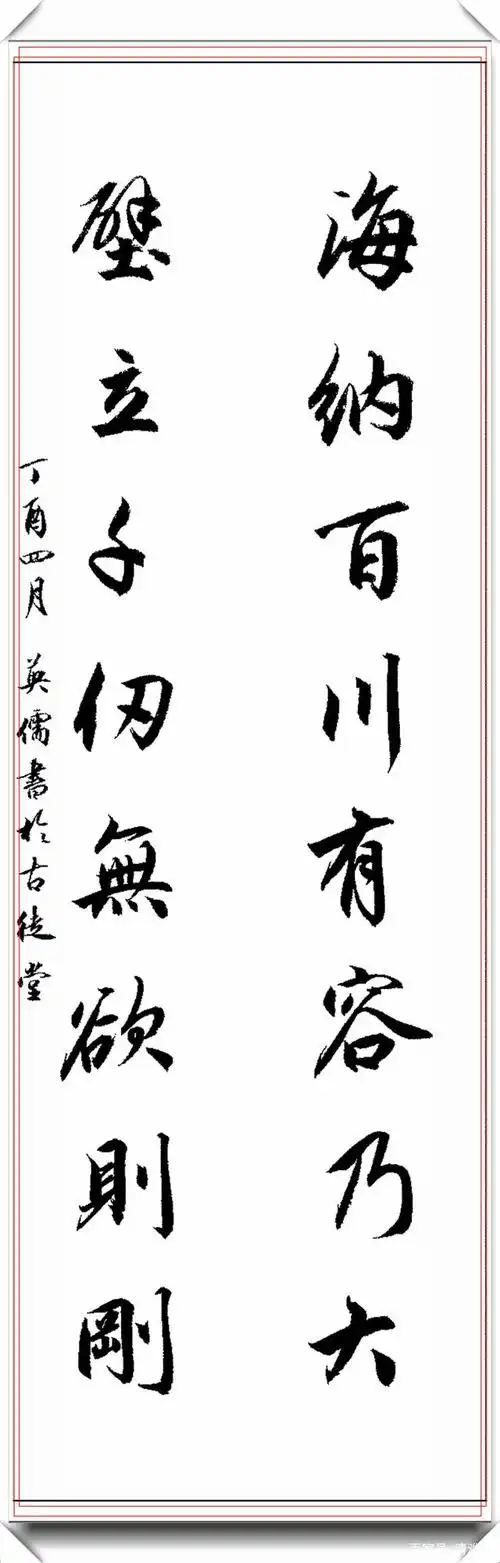 海納百川有容乃大
壁立千仞無欲則剛
丁酉四月 英儒書於古徒堂
百家号